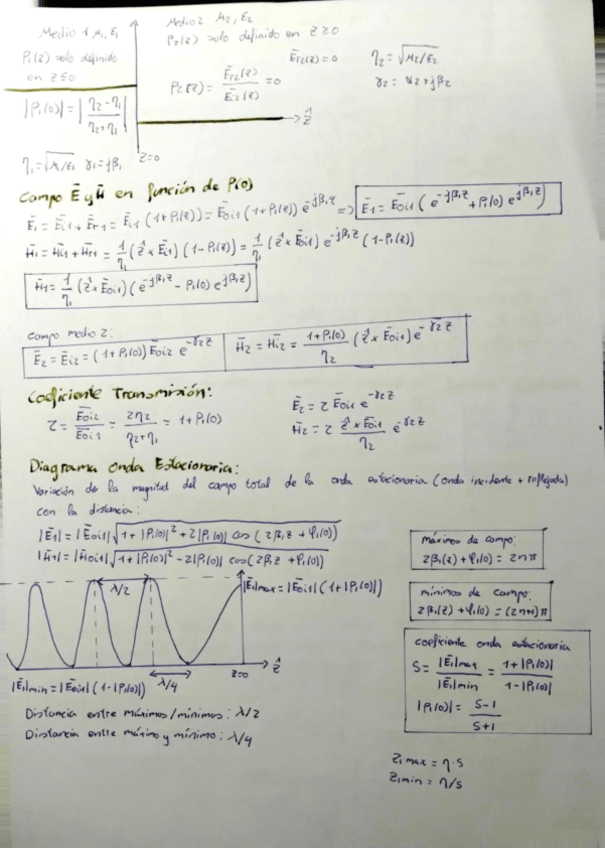 Medio 1 μ₁, ε₁
ρ₁(z) solo definido
en z≤0
|ρ₁(0)| = |(η₂-η₁)/(η₂+η₁)|
η₁ = √(μ₁/ε₁) γ₁ = jβ₁
z=0
Medio 2 μ₂, ε₂
ρ₂(z) solo definido en z≥0
Ēr₂(z) = 0
ρ₂(z) = Ēr₂(z)/Ēi₂(z) = 0
η₂ = √(μ₂/ε₂)
γ₂ = α₂ + jβ₂
ẑ
Campo Ē y H̄ en función de ρ(0)
Ē₁ = Ēi₁ + Ēr₁ = Ēi₁ (1+ρ₁(z)) = Ē₀i₁ (1+ρ₁(z)) e^(-jβ₁z) => Ē₁ = Ē₀i₁ (e^(-jβ₁z) + ρ₁(0) e^(jβ₁z))
H̄₁ = H̄i₁ + H̄r₁ = 1/η₁ (ẑ × Ēi₁) (1-ρ₁(z)) = 1/η₁ (ẑ × Ē₀i₁) e^(-jβ₁z) (1-ρ₁(z))
H̄₁ = 1/η₁ (ẑ × Ē₀i₁) (e^(-jβ₁z) - ρ₁(0) e^(jβ₁z))
campo medio 2:
Ē₂ = Ēi₂ = (1+ρ₁(0)) Ē₀i₂ e^(-γ₂z)
H̄₂ = H̄i₂ = (1+ρ₁(0))/η₂ (ẑ × Ē₀i₁) e^(-γ₂z)
Coeficiente Transmisión:
τ = Ē₀i₂/Ē₀i₁ = 2η₂/(η₂+η₁) = 1+ρ₁(0)
Ē₂ = τ Ē₀i₁ e^(-γ₂z)
H̄₂ = τ (ẑ × Ē₀i₁)/η₂ e^(-γ₂z)
Diagrama onda Estacionaria:
Variación de la magnitud del campo total de la onda estacionaria (onda incidente + reflejada)
con la distancia:
|Ē₁| = |Ē₀i₁| √(1+|ρ₁(0)|² + 2|ρ₁(0)| cos (2β₁z + φ₁(0)))
|H̄₁| = |H̄₀i₁| √(1+|ρ₁(0)|² - 2|ρ₁(0)| cos (2β₁z + φ₁(0)))
máximos de campo:
2β₁(z) + φ₁(0) = 2nπ
mínimos de campo:
2β₁(z) + φ₁(0) = (2n+1)π
λ/2
|Ē₁|max = |Ē₀i₁| (1+|ρ₁(0)|)
z=0
ẑ
λ/4
|Ē₁|min = |Ē₀i₁| (1-|ρ₁(0)|)
coeficiente onda estacionaria
S = |Ē₁|max/|Ē₁|min = (1+|ρ₁(0)|)/(1-|ρ₁(0)|)
|ρ₁(0)| = (S-1)/(S+1)
Distancia entre máximos/mínimos: λ/2
Distancia entre máximo y mínimo: λ/4
z₁max = η·S
z₁min = η/S